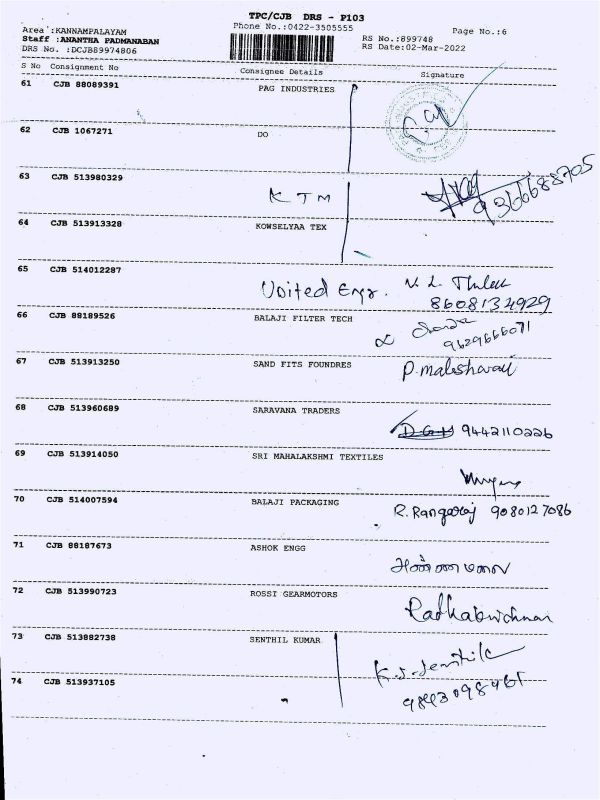 TPC/CJB DRS - P103
Area :KANNAMPALAYAM
Phone No.:0422-3505555
Page No.:6
Staff :ANANTHA PADMANABAN
RS No.:899748
DRS No. :DCJB89974806
RS Date:02-Mar-2022
S No Consignment No Consignee Details Signature
61 CJB 88089391 PAG INDUSTRIES
62 CJB 1067271 DO
63 CJB 513980329 KTM
9366688705
64 CJB 513913328 KOWSELYAA TEX
65 CJB 514012287 United Engr.
8608134929
66 CJB 88189526 BALAJI FILTER TECH
9629666071
67 CJB 513913250 SAND FITS FOUNDRES P.maheshwari
68 CJB 513960689 SARAVANA TRADERS
9442110226
69 CJB 513914050 SRI MAHALAKSHMI TEXTILES
70 CJB 514007594 BALAJI PACKAGING
R. Rangaraj 9080127086
71 CJB 88187673 ASHOK ENGG
அண்ணாமலை
72 CJB 513990723 ROSSI GEARMOTORS
Radhakrishnan
73 CJB 513882738 SENTHIL KUMAR
74 CJB 513937105